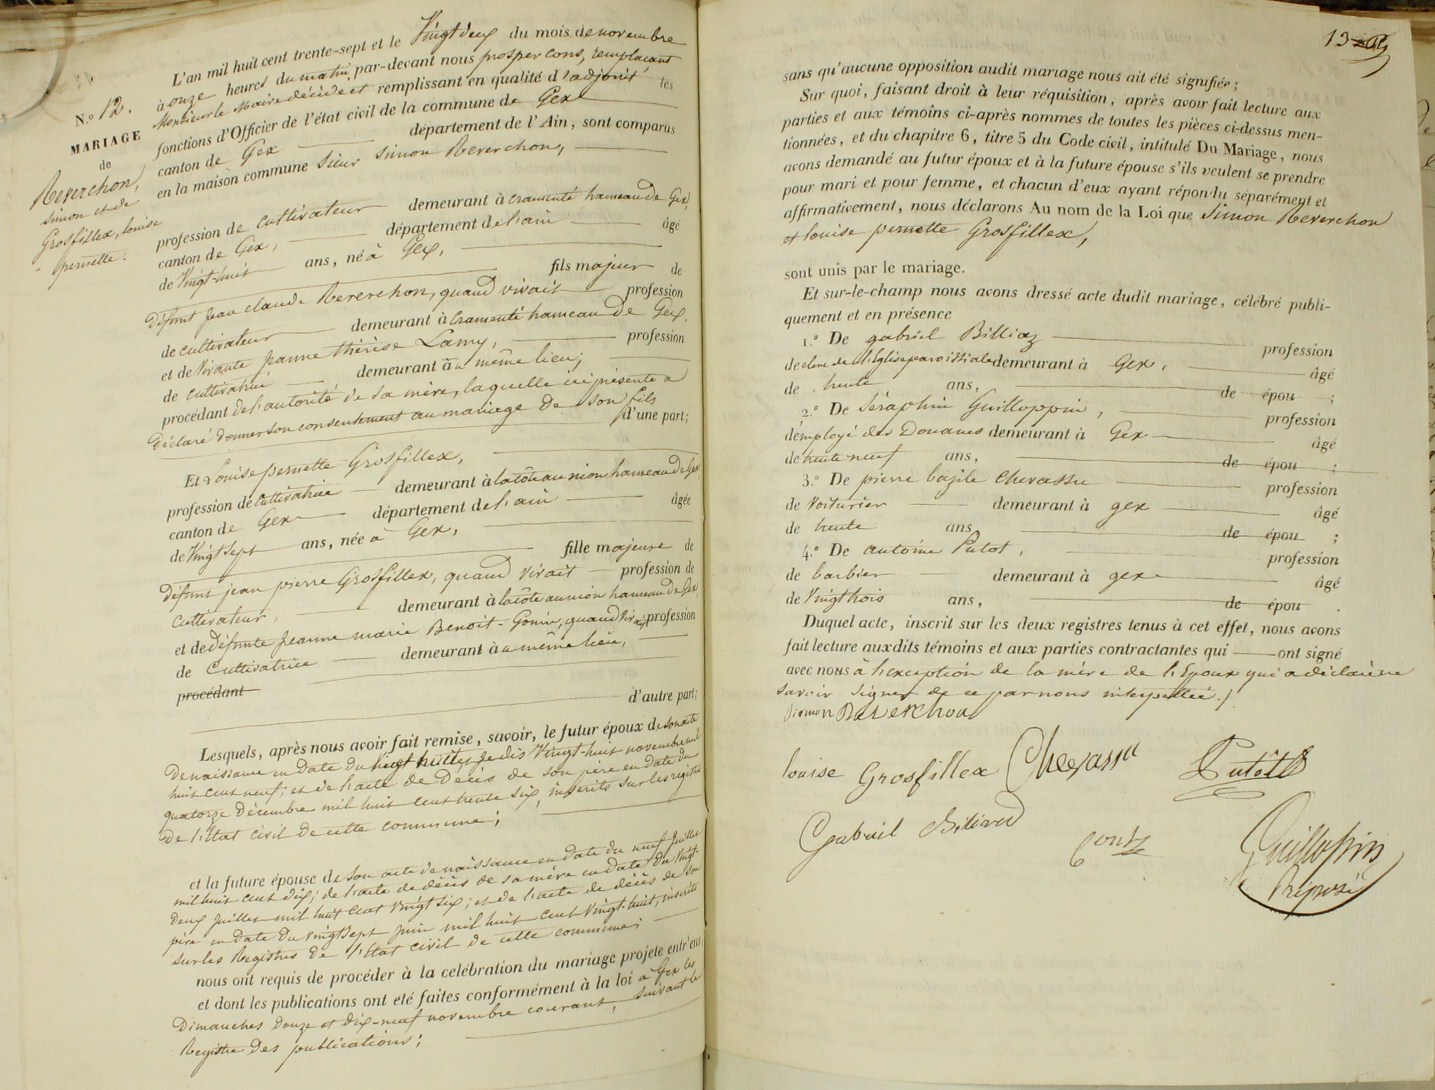 N.º 12.
MARIAGE
de
Reverchon,
Simon et de
Grosfillex, louise
pernette.
L'an mil huit cent trente-sept et le Vingt deux du mois de novembre
à onze heures du matin, par-devant nous prosper Cons, remplaçant
Monsieur le Maire décédé et remplissant en qualité d'adjoint les
fonctions d'Officier de l'état civil de la commune de Gex
canton de Gex département de l'Ain, sont comparus
en la maison commune Sieur Simon Reverchon,
profession de cultivateur demeurant à cramenté hameau de Gex,
canton de Gex, département de l'ain âgé
de Vingt-huit ans, né à Gex,
fils majeur de
défunt jean claude Reverchon, quand vivait profession
de cultivateur demeurant à cramenté hameau de Gex.
et de vivante jeanne thérèse Lamy, profession
de cultivatrice demeurant à u même lieu;
procédant de l'autorité de sa mère, laquelle ici présente a
Déclaré donner son consentement au mariage de son fils
d'une part;
Et Louise pernette Grosfillex,
profession de Cultivatrice demeurant à la côte au nion hameau de Gex
canton de Gex département de l'ain âgée
de Vingt Sept ans, née à Gex,
fille majeure de
défunt jean pierre Grosfillex, quand vivait profession de
cultivateur, demeurant à la côte au nion hameau de Gex
et de défunte jeanne marie Benoit-Gonin, quand vivait profession
de Cultivatrice demeurant à u même lieu,
procédant
d'autre part;
Lesquels, après nous avoir fait remise, savoir, le futur époux de son acte
de naissance en date du Vingt-huit novembre mil
huit cent neuf; et de l'acte de Décès de son père en date du
quatorze Décembre mil huit cent trente six, inscrits sur les registres
de l'Etat civil de cette commune;
et la future épouse de son acte de naissance en date du neuf juillet
mil huit cent dix; de l'acte de décès de sa mère en date du Vingt-
deux juillet mil huit cent Vingt six; et de l'acte de décès de son
père en date du Vingt Sept juin mil huit cent Vingt-huit, inscrits
sur les Registres de l'Etat civil de cette commune;
nous ont requis de procéder à la celébration du mariage projeté entr'eux
et dont les publications ont été faites conformément à la loi à Gex les
Dimanches Douze et dix-neuf novembre courant, suivant le
Registre des publications;
13
sans qu'aucune opposition audit mariage nous ait été signifiée;
Sur quoi, faisant droit à leur réquisition, après avoir fait lecture aux
parties et aux témoins ci-après nommés de toutes les pièces ci-dessus men-
tionnées, et du chapitre 6, titre 5 du Code civil, intitulé Du Mariage, nous
avons demandé au futur époux et à la future épouse s'ils veulent se prendre
pour mari et pour femme, et chacun d'eux ayant répondu séparément et
affirmativement, nous déclarons Au nom de la Loi que Simon Reverchon
et louise pernette Grosfillex,
sont unis par le mariage.
Et sur-le-champ nous avons dressé acte dudit mariage, célébré publi-
quement et en présence
1.º De gabriel Billiaz profession
de clerc de l'Eglise paroissiale demeurant à Gex, âgé
de trente ans, de épou ;
2.º De Séraphin Guilloppin, profession
d'employé des Douanes demeurant à Gex âgé
de trente neuf ans, de épou ;
3.º De pierre bazile Chevassu profession
de Voiturier demeurant à gex âgé
de trente ans de épou ;
4.º De antoine Putot, profession
de barbier demeurant à gex âgé
de Vingt trois ans, de épou .
Duquel acte, inscrit sur les deux registres tenus à cet effet, nous avons
fait lecture auxdits témoins et aux parties contractantes qui ont signé
avec nous à l'exception de la mère de l'Epoux qui a déclaré ne
savoir signer de ce par nous interpellée./
Simon Reverchon
louise Grosfillex Chevassu Putot
Gabriel Cons Guillopin
Préposé